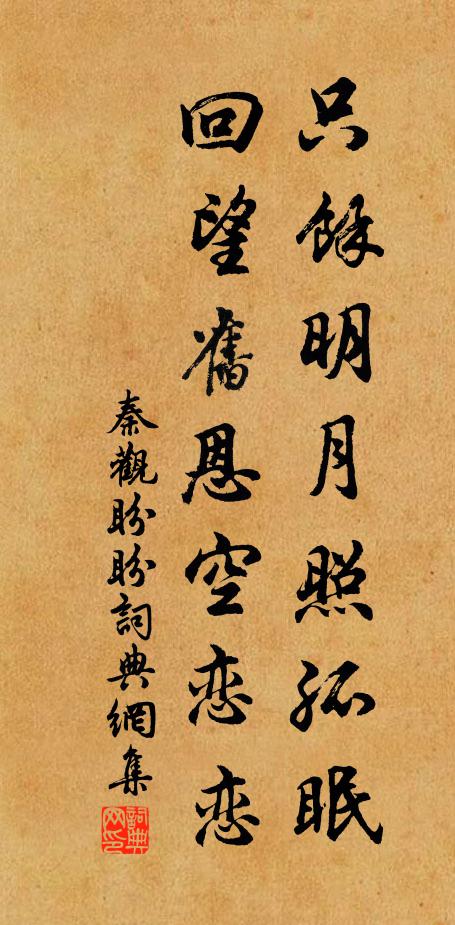 只餘明月照孤眠
回望舊恩空恋恋
秦觀盼盼詞典網集
詞典網印